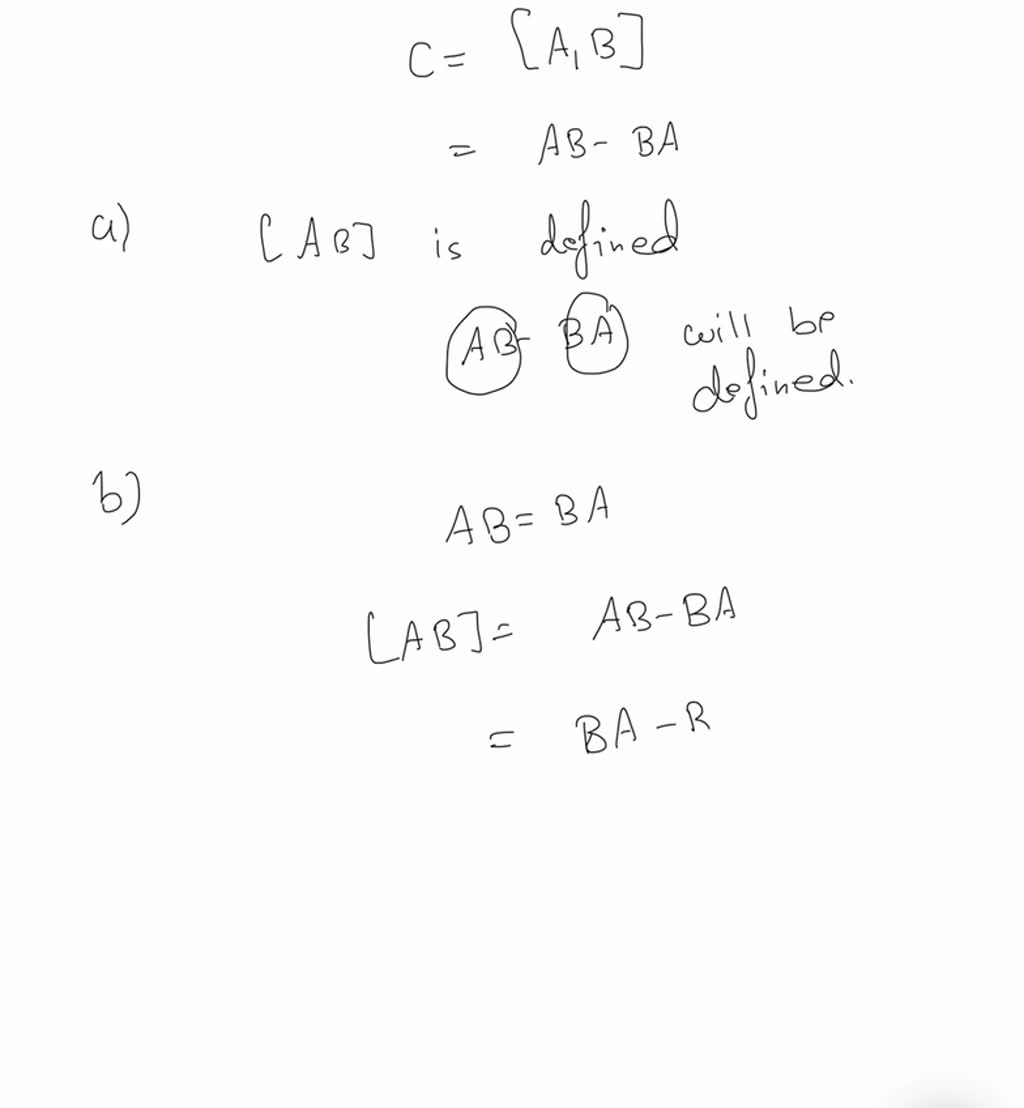 C = [A, B]
= AB - BA
a) [AB] is defined
AB - BA will be
defined.
b)
AB = BA
[AB] = AB - BA
= BA - R